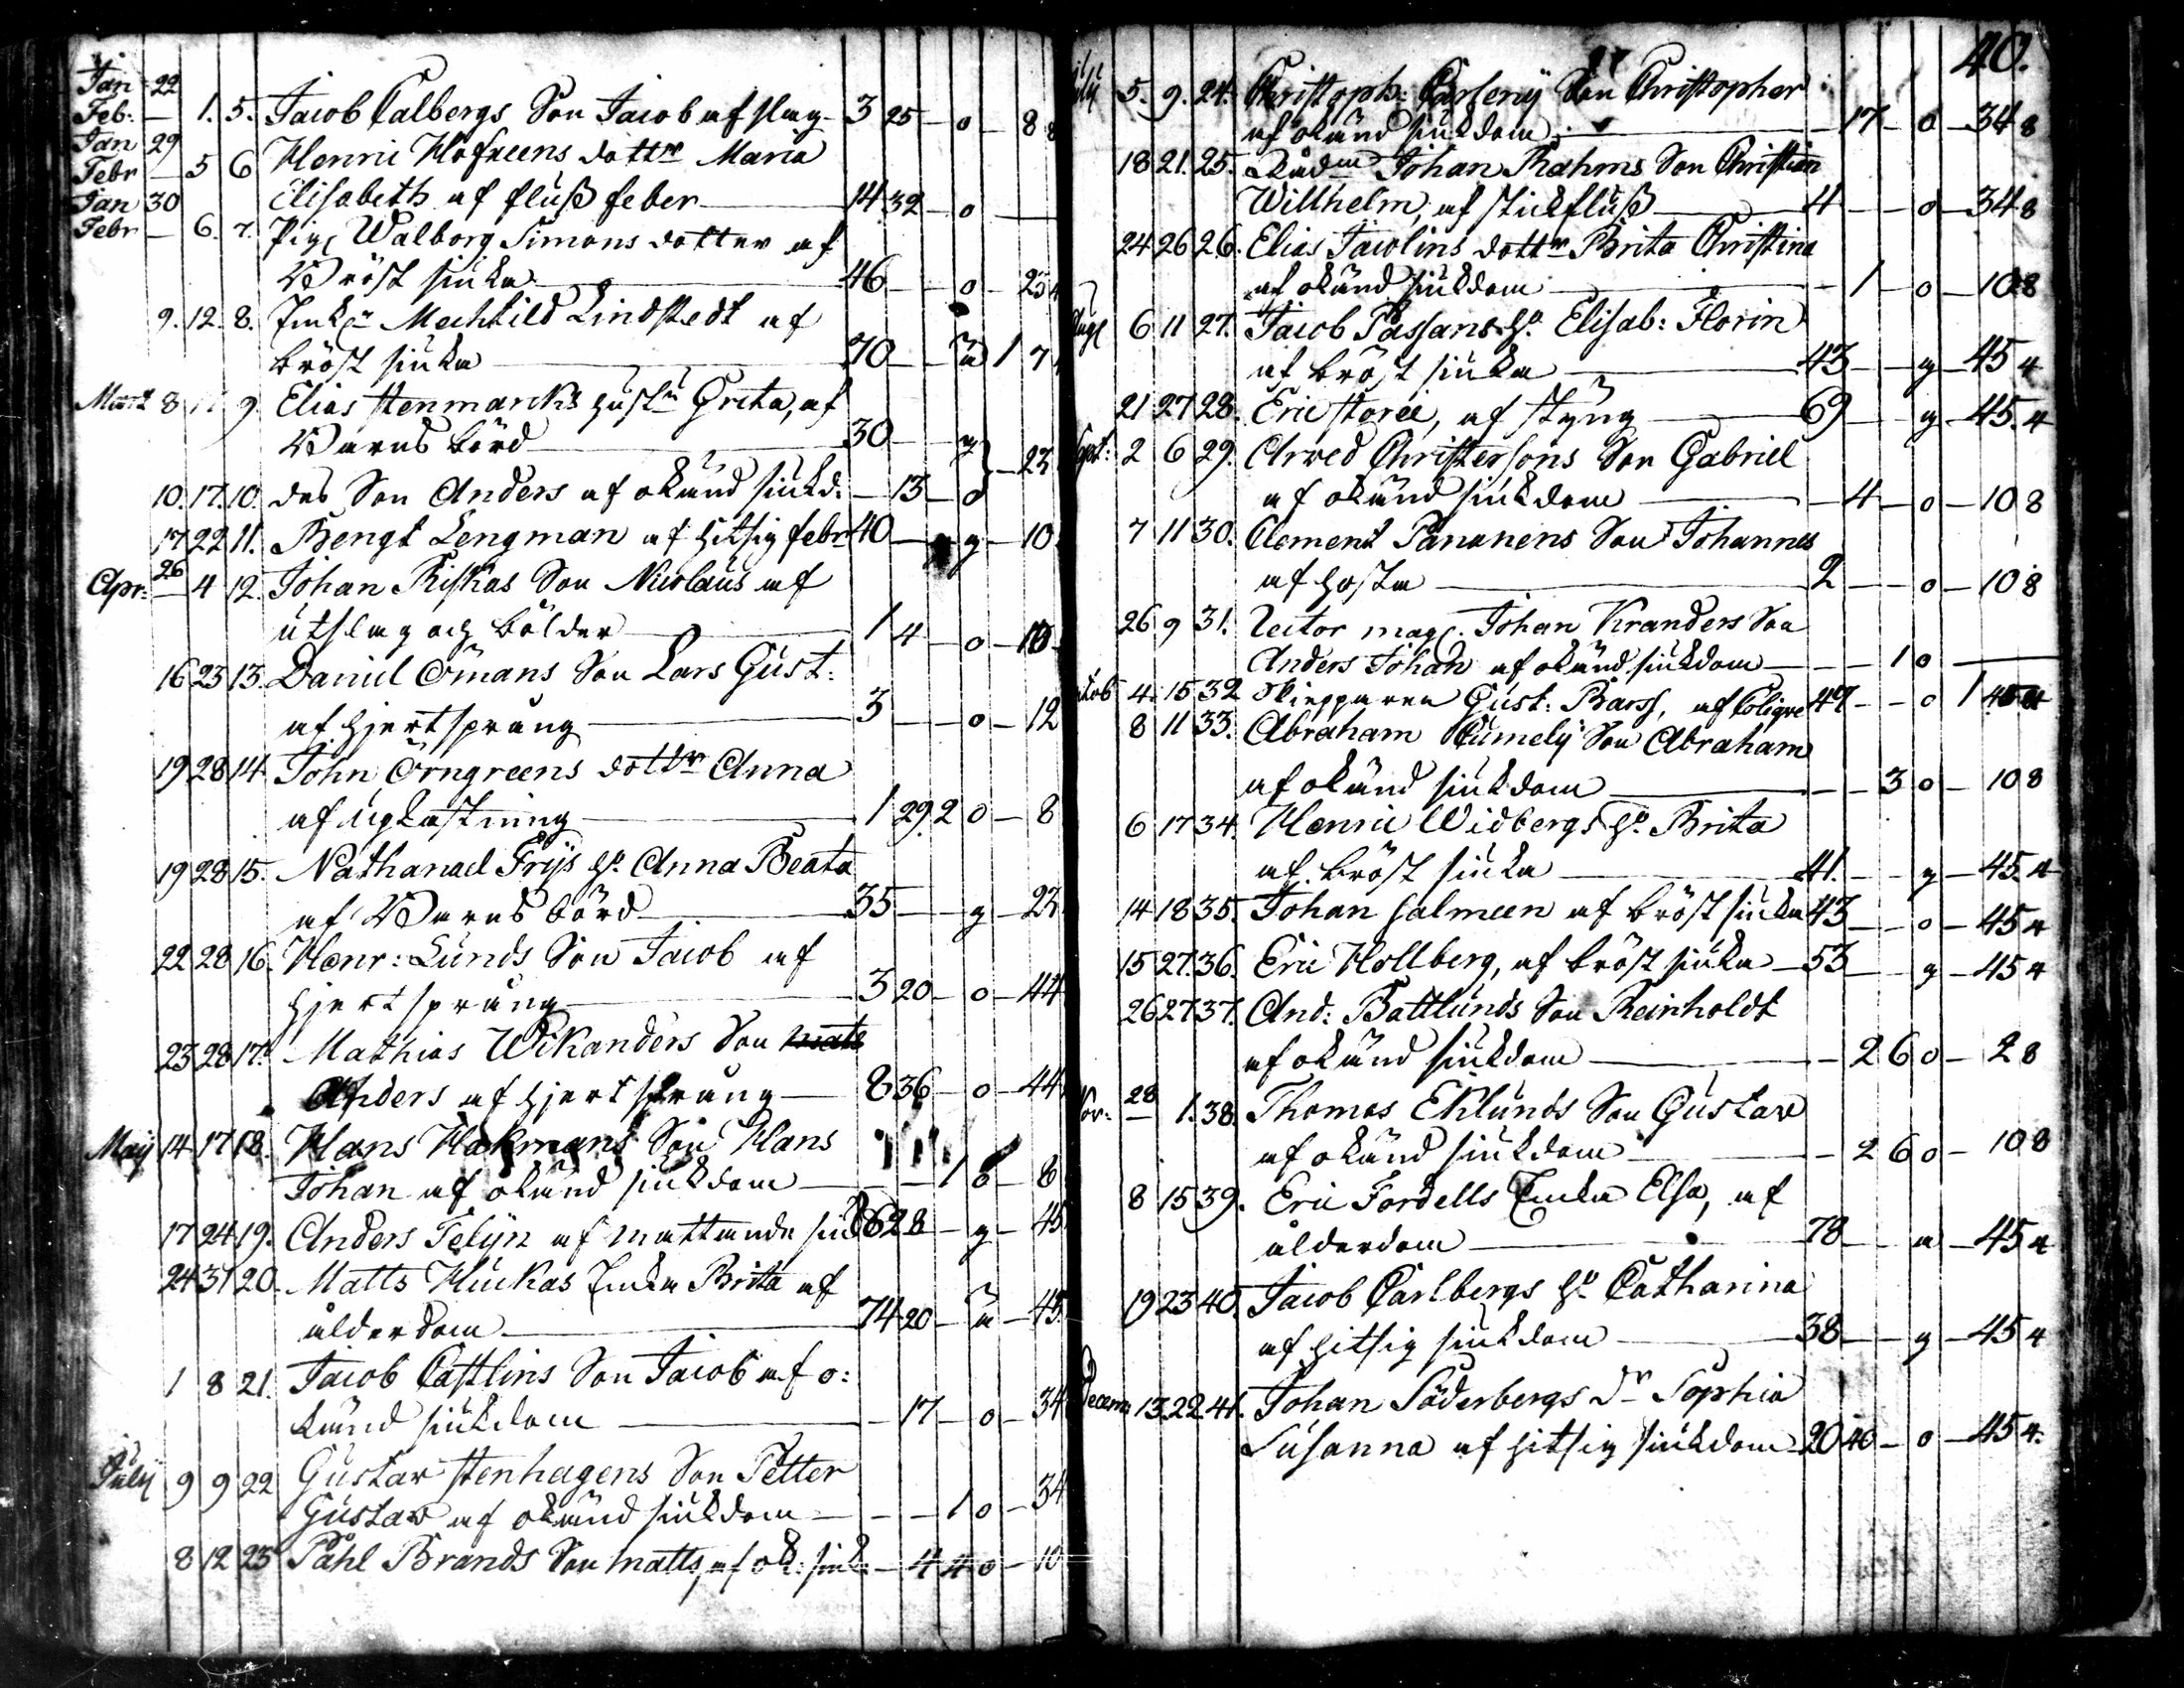 Jan 22
Feb: — 1. 5. Jacob Calbergs Son Jacob af slag — 3 25 — o — 8 8
Jan 29
Febr — 5 6 Henric Hofreens dottr Maria
Elisabeth af fluß feber — 14 32 — o —
Jan 30
Febr — 6. 7. Pig. Walborg Simons dotter af
Bröst siuka — 46 — o — 23 4
9. 12. 8. Enk: Mechtild Lindstedt af
bröst siuka — 70 — ä 1 7
Mart 8 17 9 Elias Stenmarcks hustru Greta, af
Barns börd — 30 — g
— 23
10. 17. 10. des Son Anders af okänd siukd: — 13 — o
17 22 11. Bengt Lengman af hitsig febr 40 — g — 10
26
Apr: — 4 12. Johan Riskas Son Nicolaus af
utslag och bölder — 1 4 — o — 10
16 23 13. Daniel Ömans Son Lars Gust:
af hjertsprång — 3 — o — 12
19 28 14 John Örngreens dottr Anna
af upkastning — 1 29 2 o — 8
19 28 15. Nathanael Frijs h: Anna Beata
af Barns börd — 35 — g — 23
22 28 16. Henr: Lunds Son Jacob af
hjertsprång — 3 20 — o — 44
23 28 17. Mathias Wikanders Son Mats
Anders af hjertsprång — 8 36 — o — 44
Maij 14 17 18. Hans Hakmans Son Hans
Johan af okänd siukdom — 1 o — 8
17 24 19. Anders Telijn af mattande siuk 62 8 — g — 45
24 31 20. Matts Huckas Enka Brita af
ålderdom — 74 20 — ä — 45.
1 8 21. Jacob Castlins Son Jacob af o:
känd siukdom — 17 — o — 34
Julij 9 9 22 Gustav Stenhagens Son Petter
Gustav af okänd siukdom — 1 o — 34
8 12 23 Påhl Brands Son Matts, af ok: siuk: — 4 4 o — 10
40.
5. 9. 24. Christoph: Son Christopher
af okänd siukdom — 17 — o — 34 8
18 21. 25. Rådm Johan Rahms Son Christian
Willhelm, af stickfluß — 4 — o — 34 8
24 26 26. Elias Jacolins dottr Brita Christina
af okänd siukdom — 1 — o — 10 8
Aug 6 11 27. Jacob Passans h: Elisab: Florin
af bröst siuka — 43 — g — 45 4
21 27 28. Eric Storee, af styng — 69 — g — 45. 4
Sept: 2 6 29. Arved Christersons Son Gabriel
af okänd siukdom — 4 — o — 10 8
7 11 30. Clement Pananens Son Johannes
af hosta — 2 — o — 10 8
26 9 31. Rector mag. Johan Kranders Son
Anders Johan af okänd siukdom — 1 o —
4. 15 32 Skepparen Gust: Barss, af Colique 47 — o 1 45 4
8 11 33. Abraham Cumelij Son Abraham
af okänd siukdom — 3 o — 10 8
6 17 34. Henric Widbergs h: Brita
af bröst siuka — 41. — g — 45. 4
14 18 35. Johan Salmeen af bröst siuka 43 — o — 45 4
15 27. 36. Eric Hollberg, af bröst siuka — 53 — g — 45 4
26 27 37. And: Battlunds Son Reinholdt
af okänd siukdom — 2 6 o — 2 8
28
Nov: — 1. 38. Thomas Eklunds Son Gustav
af okänd siukdom — 2 6 o — 10 8
8 15 39. Eric Fordells Enka Elsa, af
ålderdom — 78 — ä — 45 4
19 23 40. Jacob Carlbergs h: Catharina
af hitsig siukdom — 38 — g — 45 4
Decem 13 22 41. Johan Söderbergs dr Sophia
Susanna af hitsig siukdom 20 40 — o — 45 4.